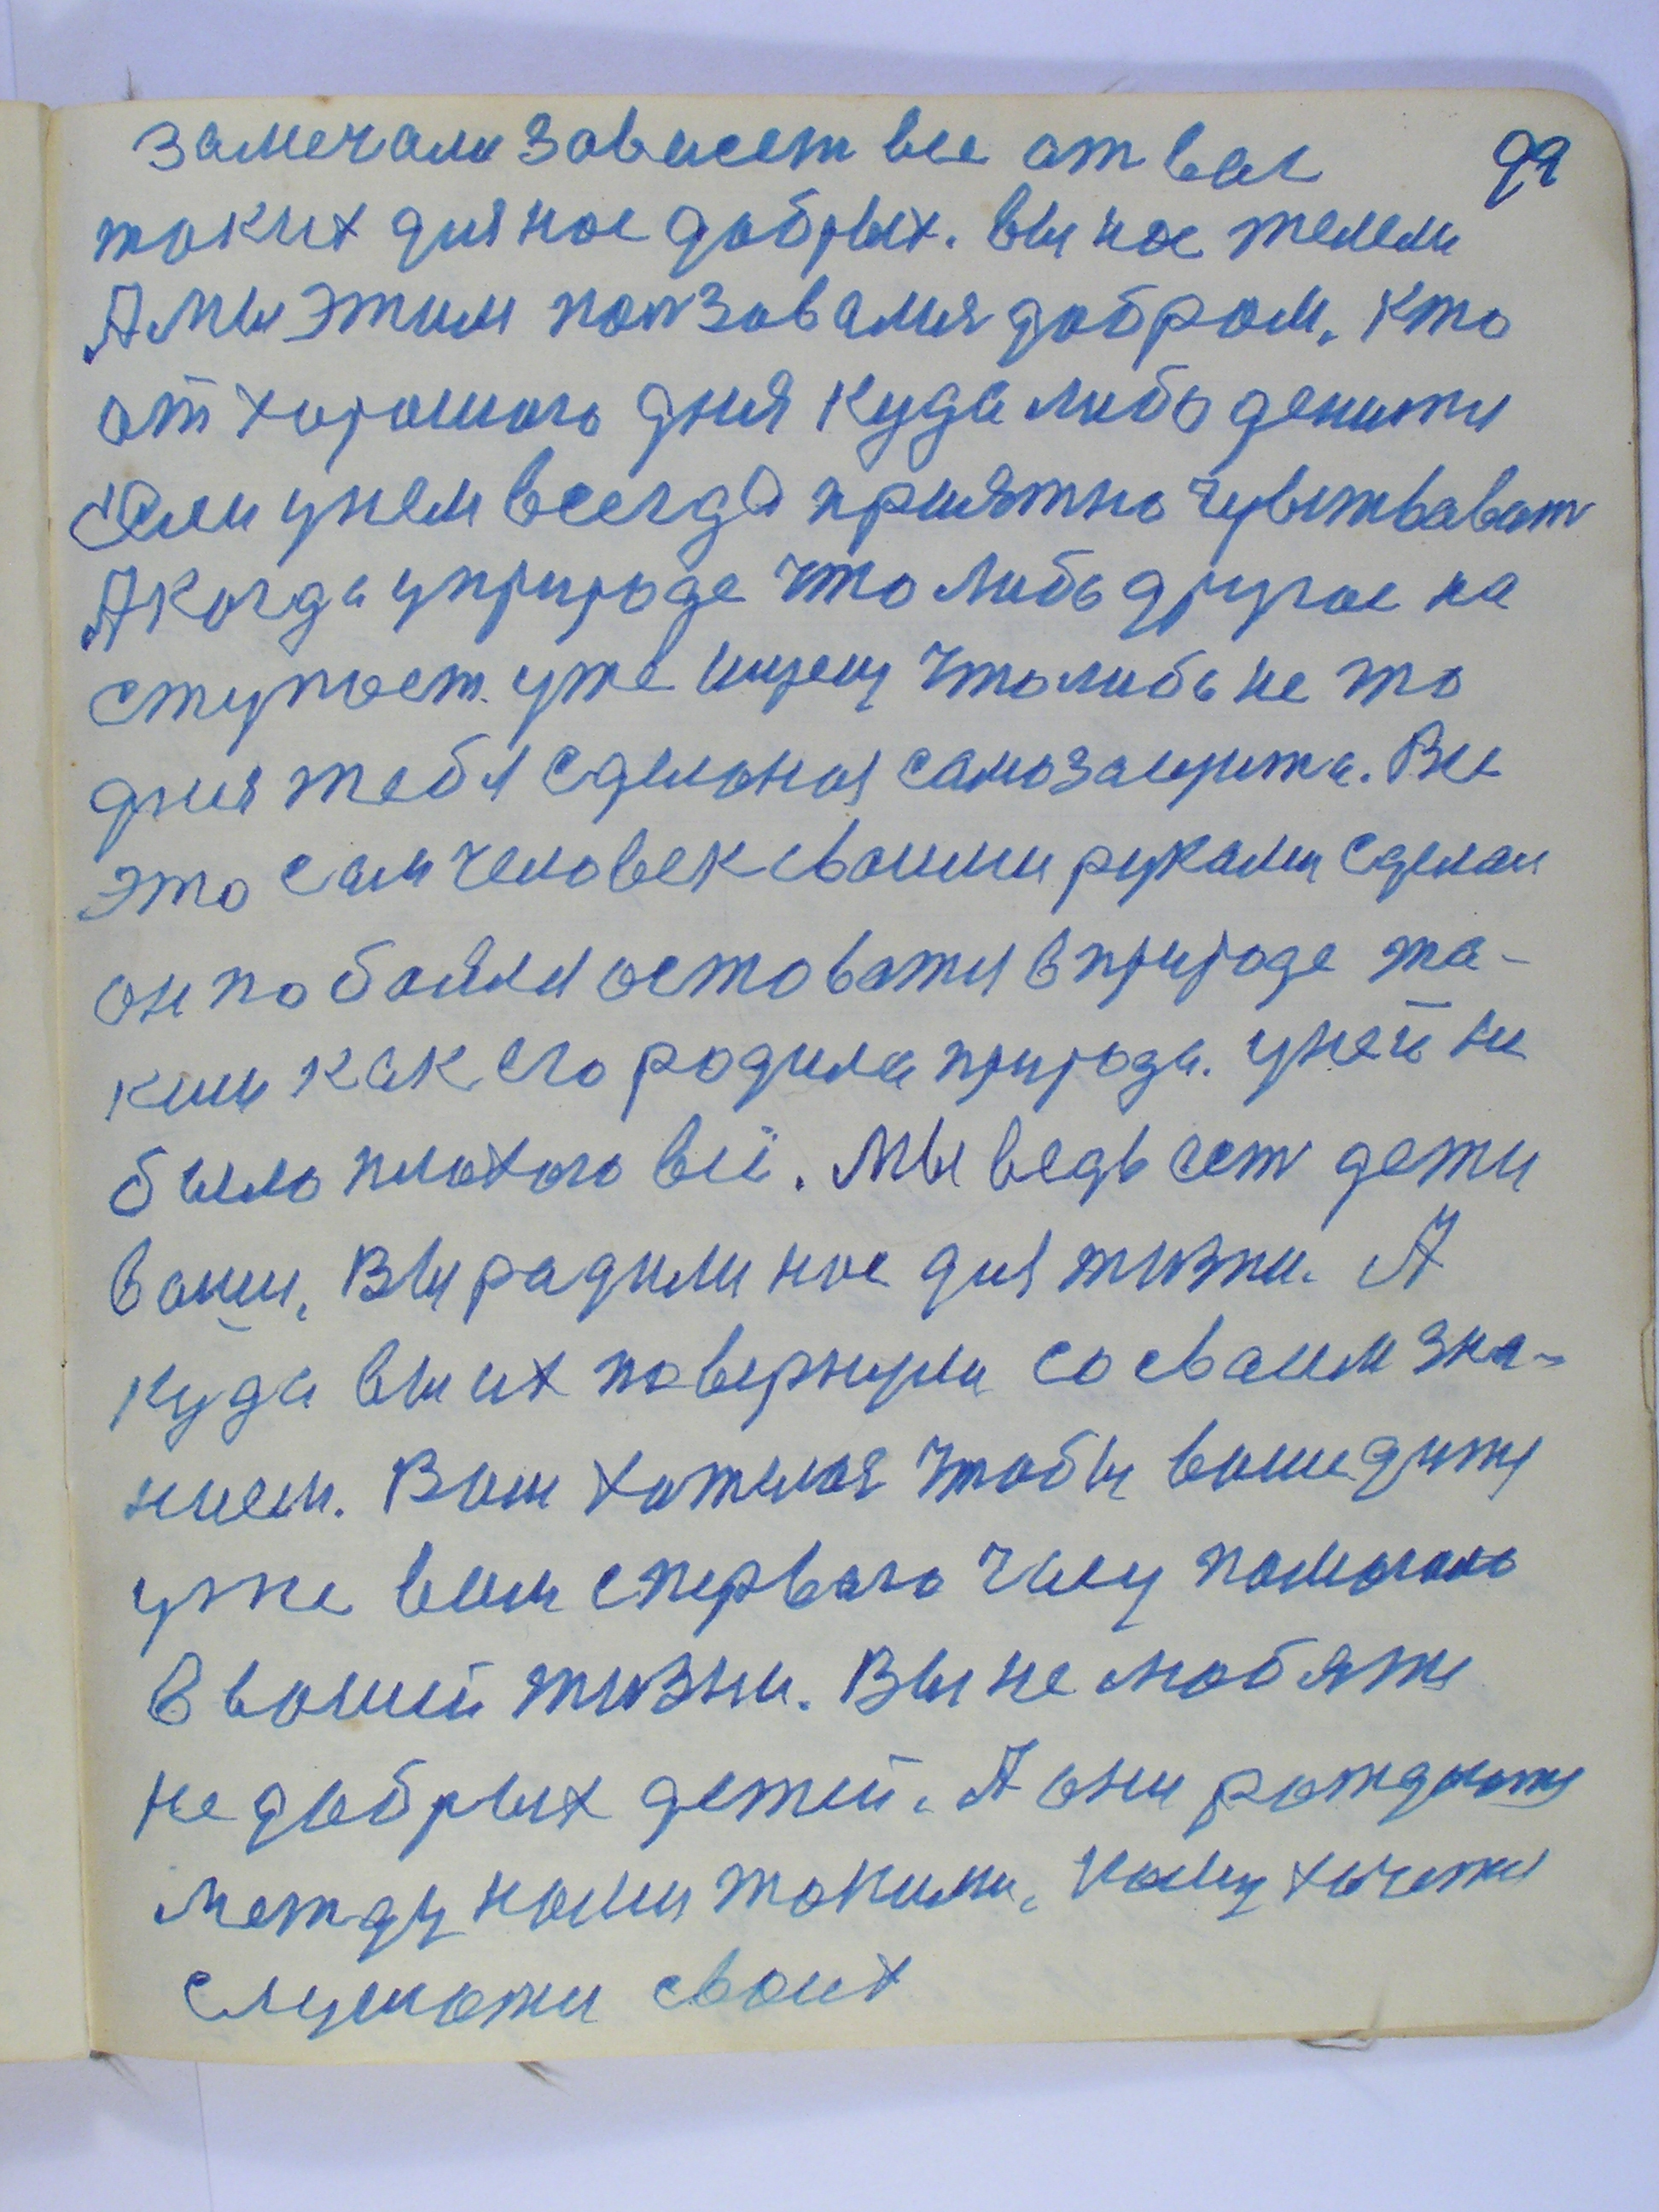 замечали зависет все от вас 99
таких для нас добрых. Вы нас жалели
А мы этим ползовалися добром. Кто
от хорошого дня куда либо денится
Если у нем всегда приятно чувствават
А когда у природе что либо другое на
ступает. уже ищещ что либо не то
для тебя сделоная самозащита. Все
это сам человек своими руками сделал
он побоялся остоватся в природе та-
ким как его родила природа. у ней не
было плохого всё. Мы ведь ест дети
ваши. Вы радили нас для жизни. А
куда вы их повернули со сваим зна-
нием. Вам хотилося чтобы ваше дитя
уже вам с первого часу помогало
в вашей жизни. Вы не любите
не добрых детей. А они рождаются
между нами такими. Кому хочется
слушати своих